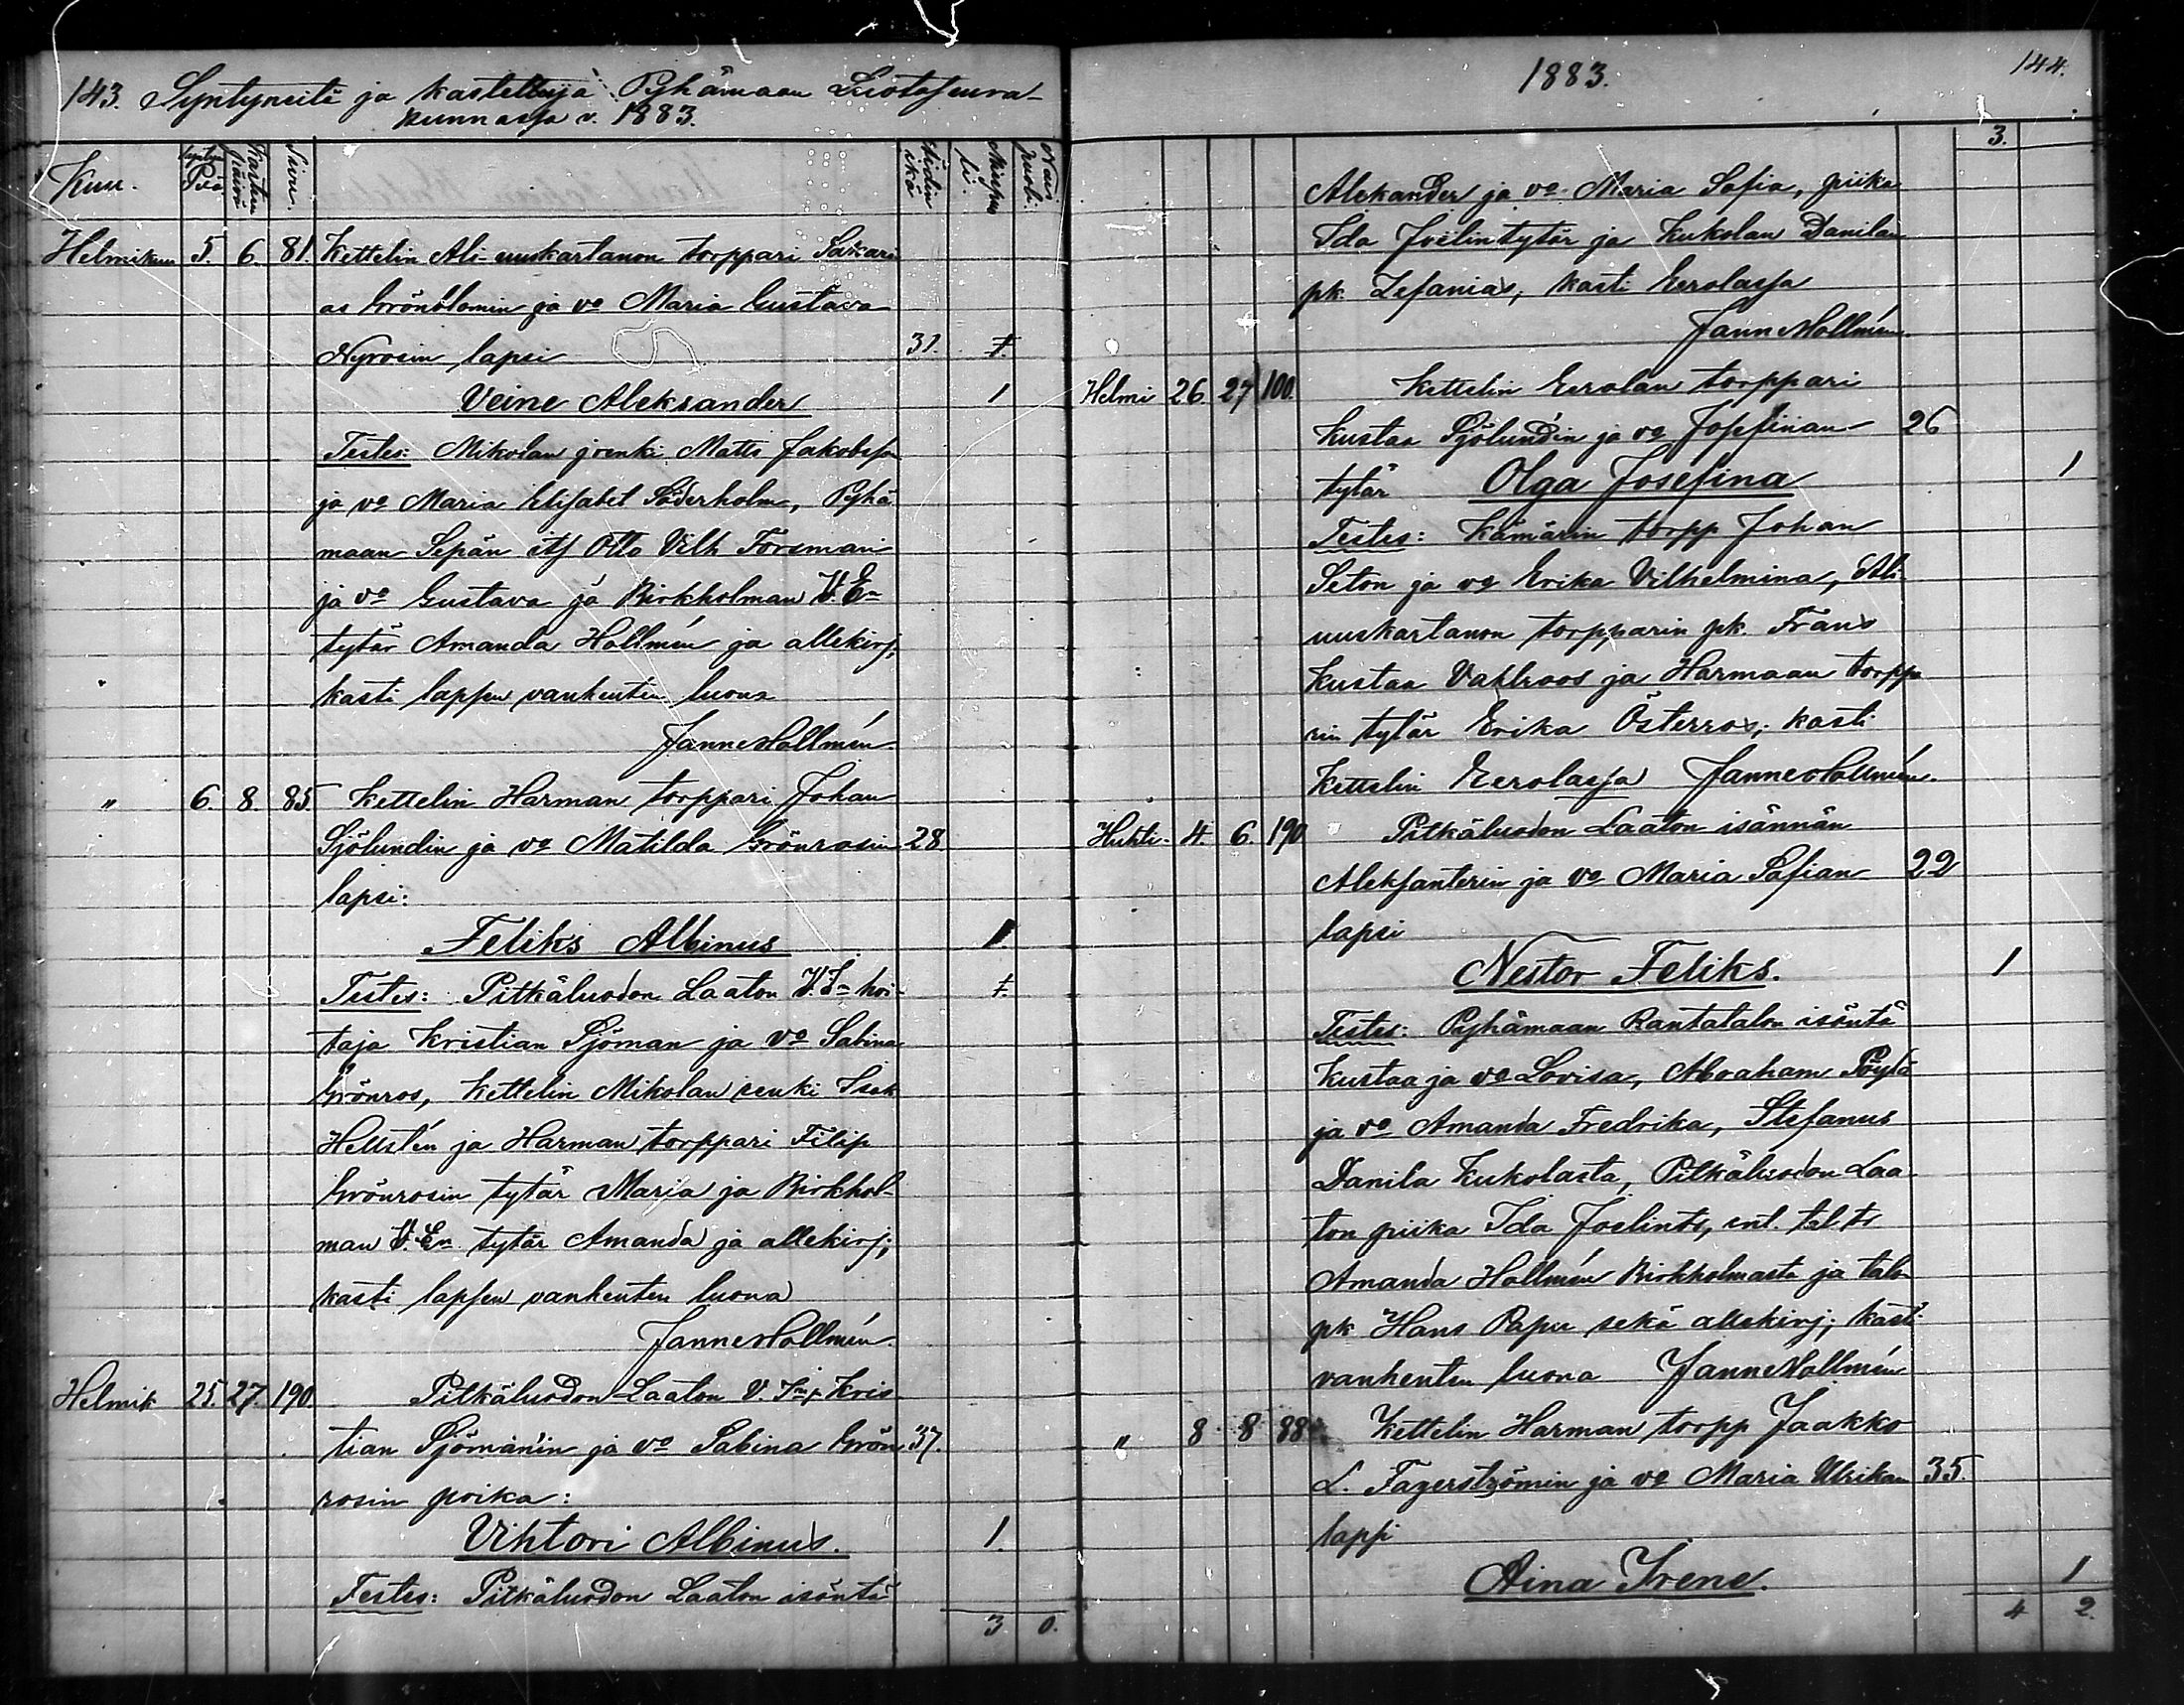 143. Syntyneitä ja kastettuja Pyhämaan Luotoseura-
kunnassa v. 1883.
Kuu.
Synty. Päi
Kasten päivä
Sivu.
Äidin ikä
Miespuoli.
Naispuoli.
Helmikuu 5. 6. 81. Kettelin Ali-uuskartanon torppari Sakari
as Grönblomin ja vo Maria Gustava
Nyrosin lapsi 31.
Veine Aleksander 1
Testes: Mikolan jrenki Matts Jakobsson
ja vo Maria Elisabet Söderholm, Pyhä
maan Sepän its Otto Vilh Forsman
ja vo Gustava ja Birkholman V. En
tytär Amanda Hollmén ja allekirj;
kasti lapsen vanhenten luona
Janne Hollmén.
" 6. 8. 85. Kettelin Harman torppari Johan
Sjölundin ja vo Matilda Grönrosin 28.
lapsi:
Feliks Albinus 1
Testes: Pitkäluodon Laaton V. In hoi-
taja Kristian Sjöman ja vo Sabina
Grönros, Kettelin Mikolan renki Isak
Hellstén ja Harman torppari Filip
Grönrosin tytär Maria ja Birkhol-
man V. En tytär Amanda ja allekirj;
kasti lapsen vanhenten luona
Janne Hollmén.
Helmik 25. 27. 190. Pitkäluodon Laaton V. Kris
tian Sjöman'in ja vo Sabina Grön 37.
rosin poika:
Vihtori Albinus. 1.
Testes: Pitkäluodon Laaton isäntä
3 0.
1883. 144.
3.
Aleksander ja vo Maria Sofia, piika
Ida Joelintytär ja Kukolan Danilan
pk. Zefanias; kasti Eerolassa
Janne Hollmén.
Helmi 26. 27 100. Kettelin Eerolan torppari
Kustaa Sjölundin ja vo Josefiinan 26
tytär Olga Josefina 1
Testes: Kämärin torpp Johan
Seton ja vo Erika Vilhelmina, Ali-
uuskartanon torpparin pk. Frans
Kustaa Vahlroos ja Harmaan torppa
rin tytär Erika Österros; kasti
Kettelin Eerolassa Janne Hollmén.
Huhti- 4. 6. 190 Pitkäluodon Laaton isännän
Aleksanterin ja vo Maria Sofian 22
lapsi
Nestor Feliks. 1
Testes: Pyhämaan Rantatalon isäntä
Kustaa ja vo Lovisa, Abraham Pöytä
ja vo Amanda Fredrika, Stefanus
Danila Kukolasta, Pitkäluodon Laa-
ton piika Ida Joelints, ent. tal ts
Amanda Hollmén Birkholmasta ja talo-
pk Hans Papu sekä allekirj; kasti
vanhenten luona Janne Hollmén
" 8 8 88 Kettelin Harman torpp Jaakko
L. Fagerströmin ja vo Maria Ulrikan 35.
lapsi
Aina Irene. 1
4 2.